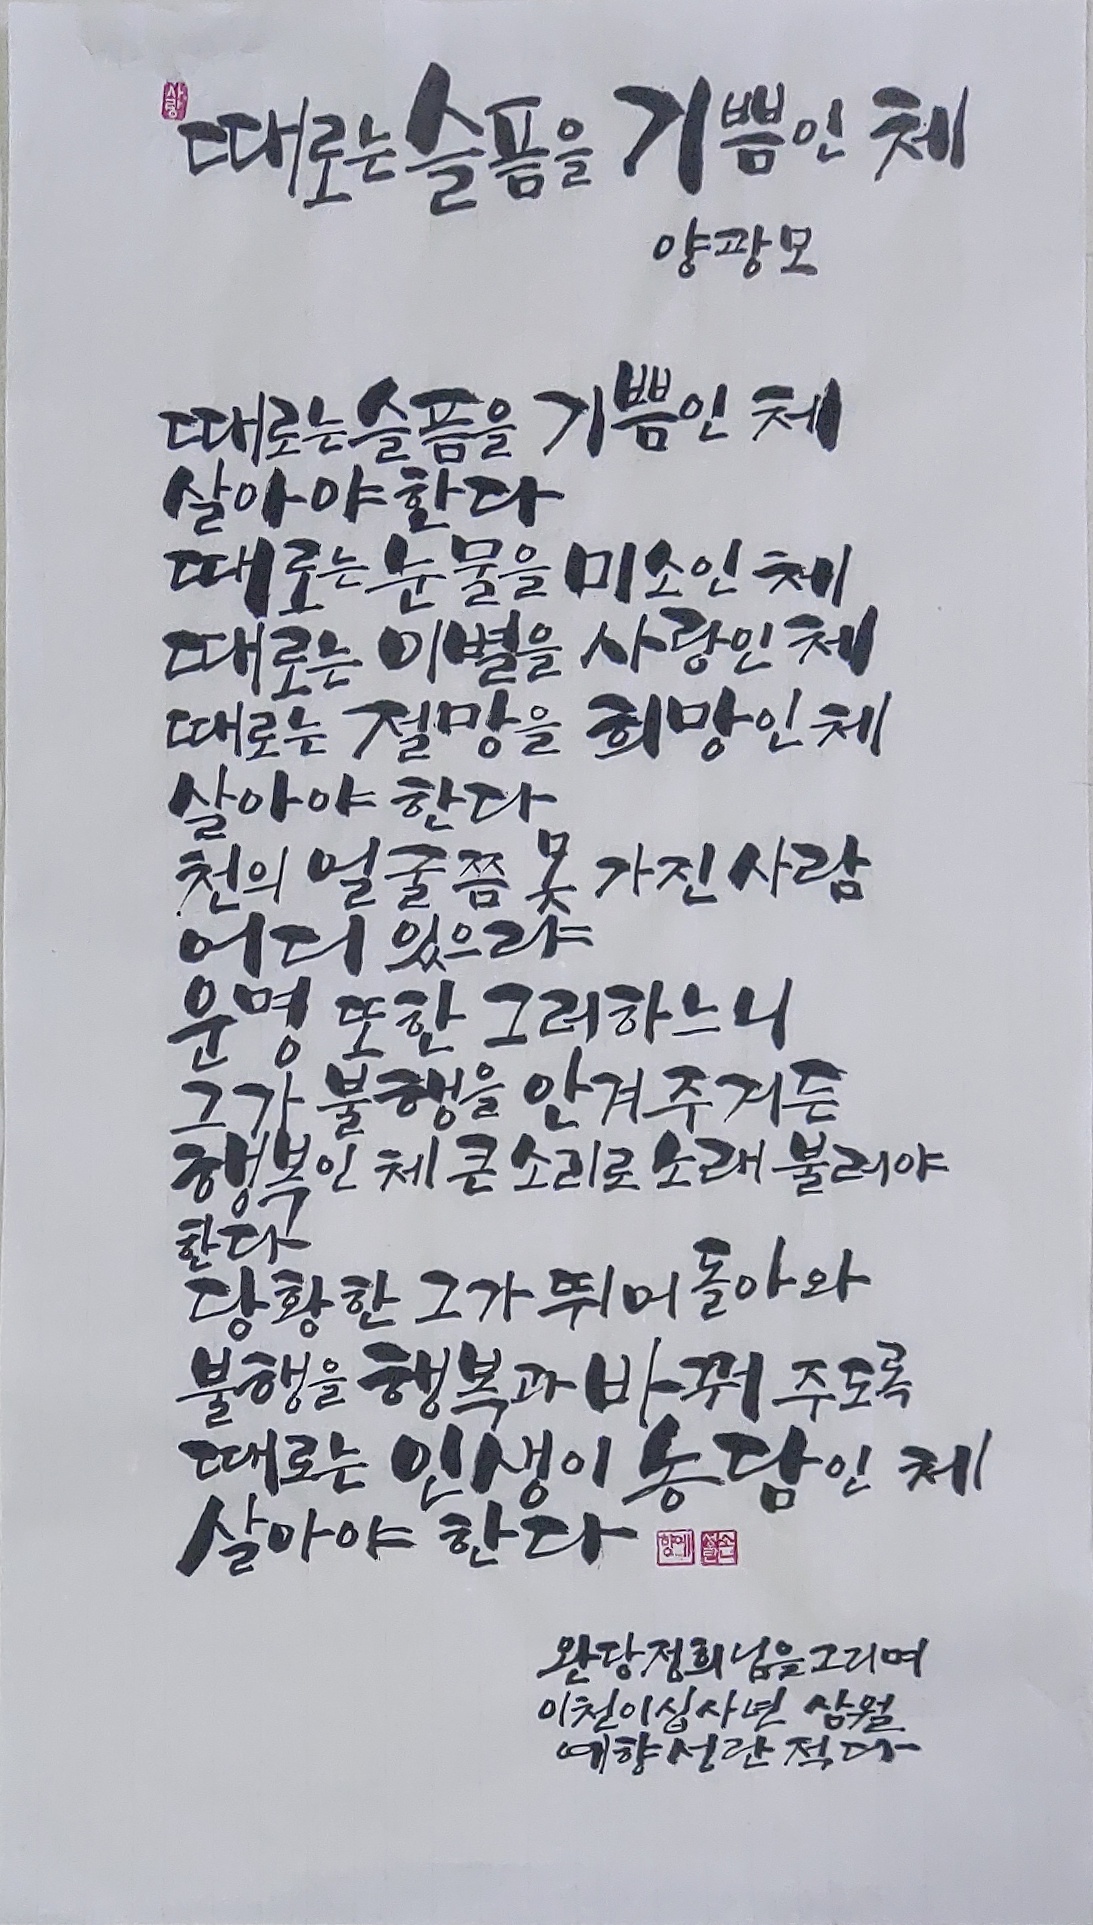 사랑
때로는 슬픔을 기쁨인 체
양광모
때로는 슬픔을 기쁨인 체
살아야 한다
때로는 눈물을 미소인 체
때로는 이별을 사랑인 체
때로는 절망을 희망인 체
살아야 한다
천의 얼굴쯤 못 가진 사람
어디 있으랴
운명 또한 그러하느니
그가 불행을 안겨주거든
행복인 체 큰 소리로 노래 불러야
한다
당황한 그가 뛰어 돌아와
불행을 행복과 바꿔 주도록
때로는 인생이 농담인 체
살아야 한다
완당 정희님을 그리며
이천이십사년 삼월
예향 성란 적다